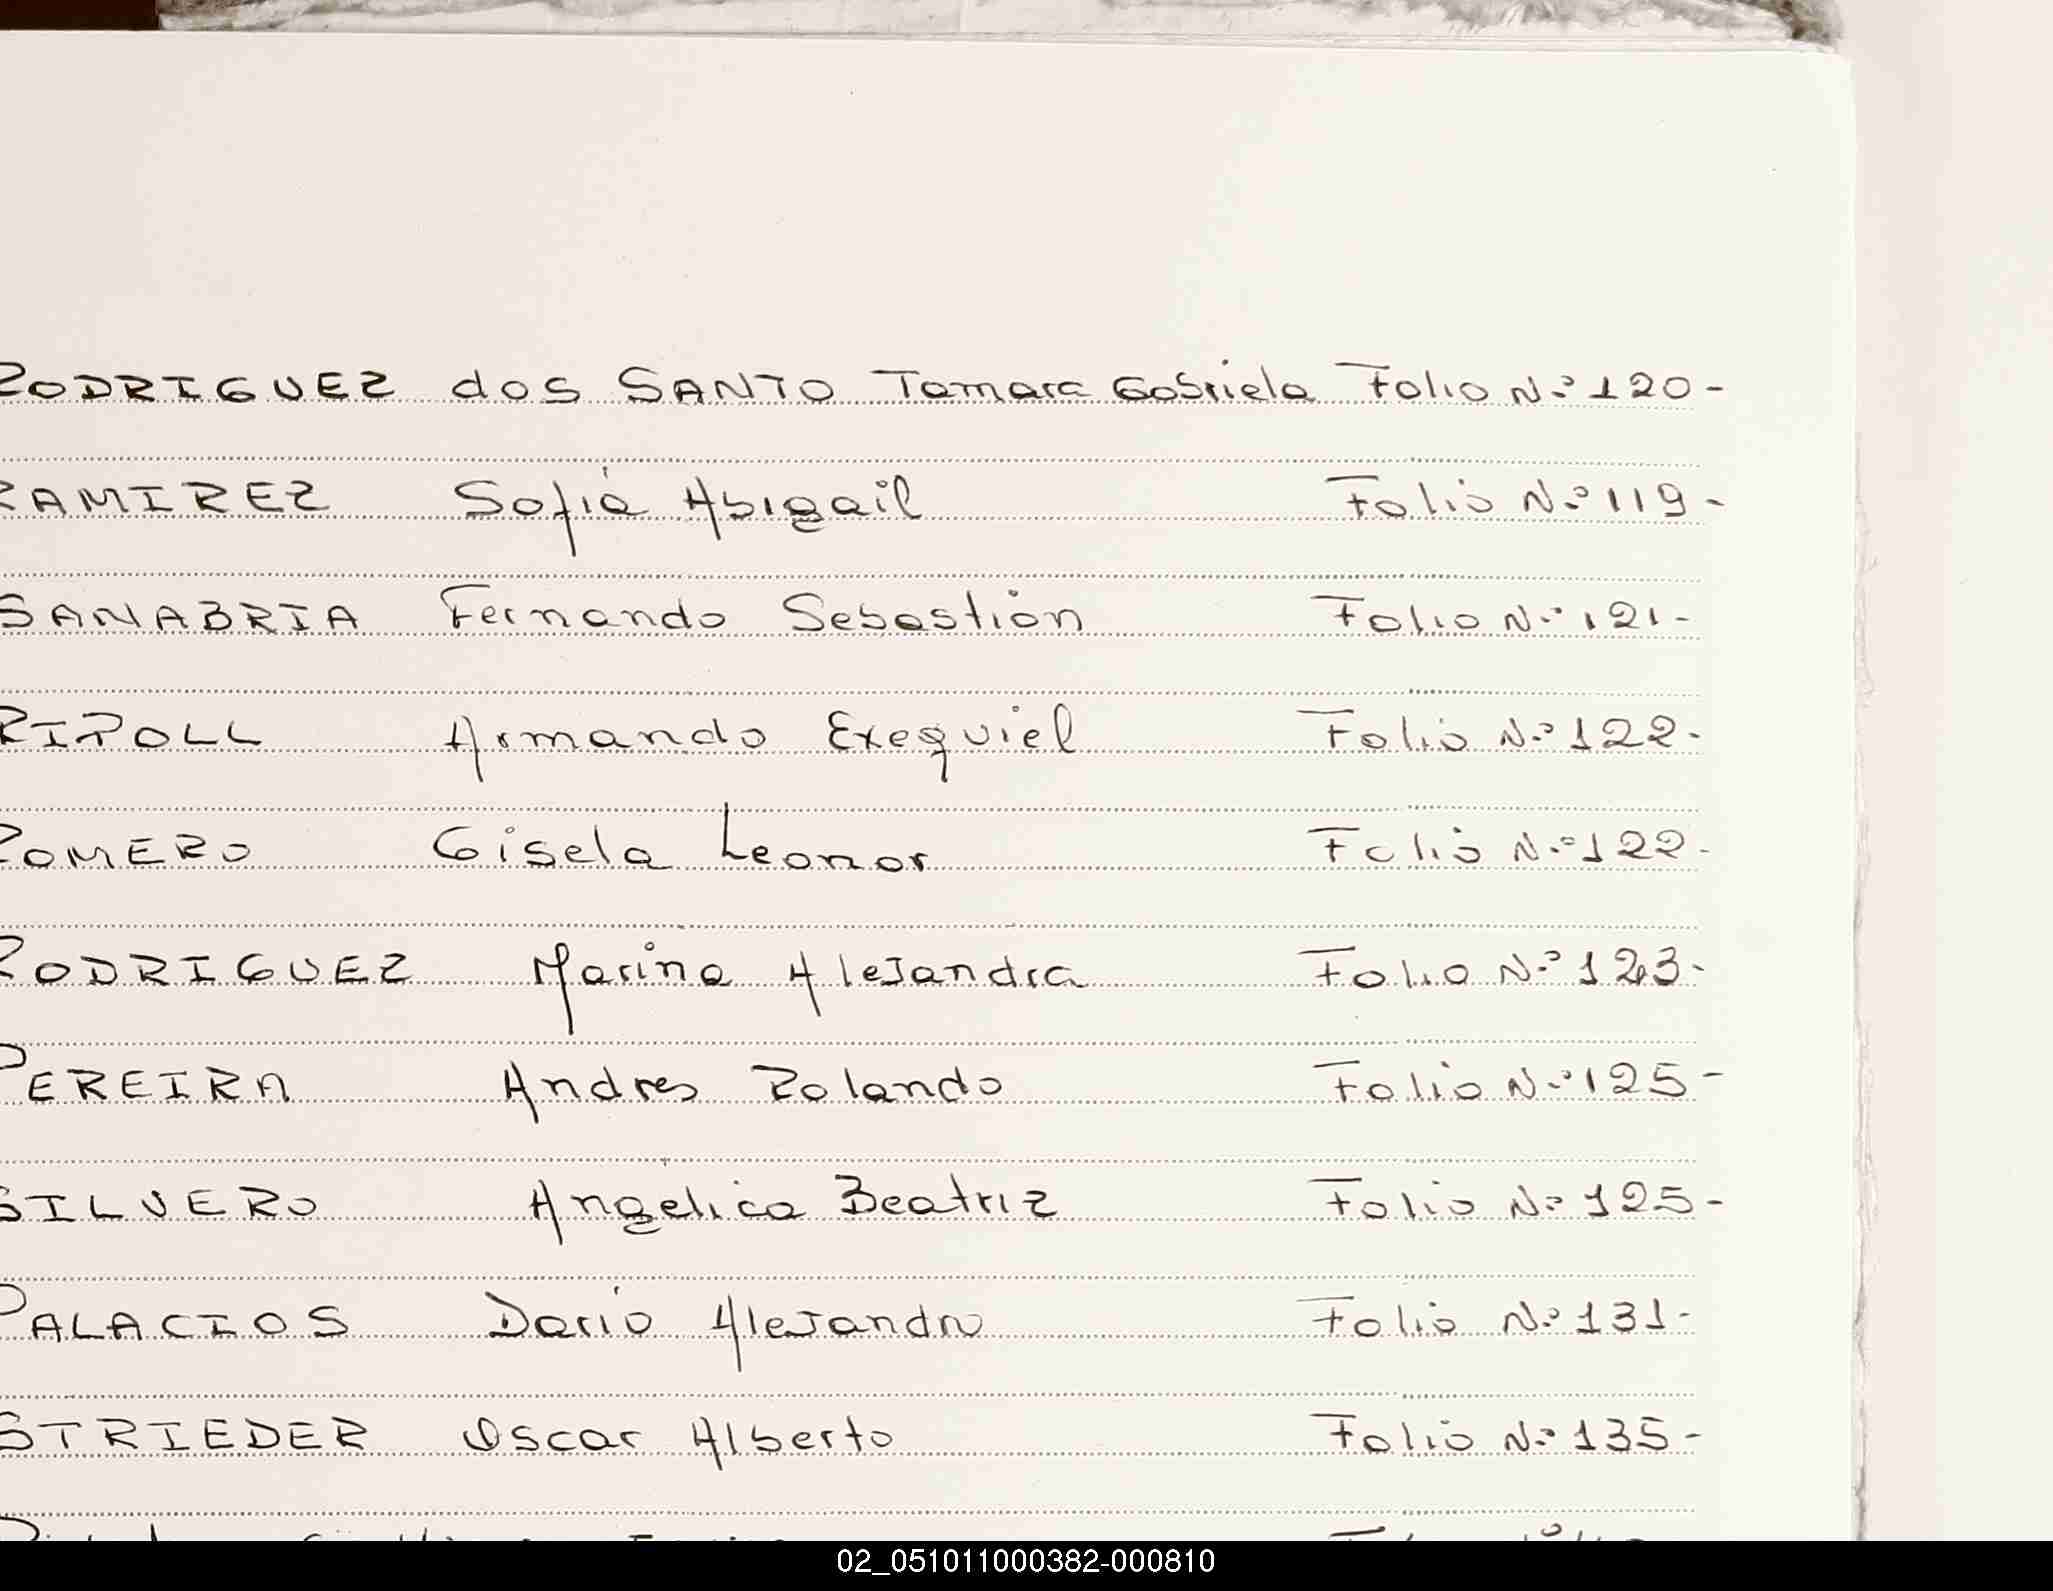 RODRIGUEZ dos SANTO Tamara Gabriela Folio Nº 120-
RAMIREZ Sofiá Abigail Folio Nº 119-
SANABRIA Fernando Sebastión Folio Nº 121-
RIPOLL Armando Exequiel Folio Nº 122-
ROMERO Gisela Leonor Folio Nº 122-
RODRIGUEZ Marina Alejandra Folio Nº 123-
PEREIRA Andres Rolando Folio Nº 125-
SILVERO Angelica Beatriz Folio Nº 125-
PALACIOS Dario Alejandro Folio Nº 131-
STRIEDER Oscar Alberto Folio Nº 135-
02_051011000382-000810